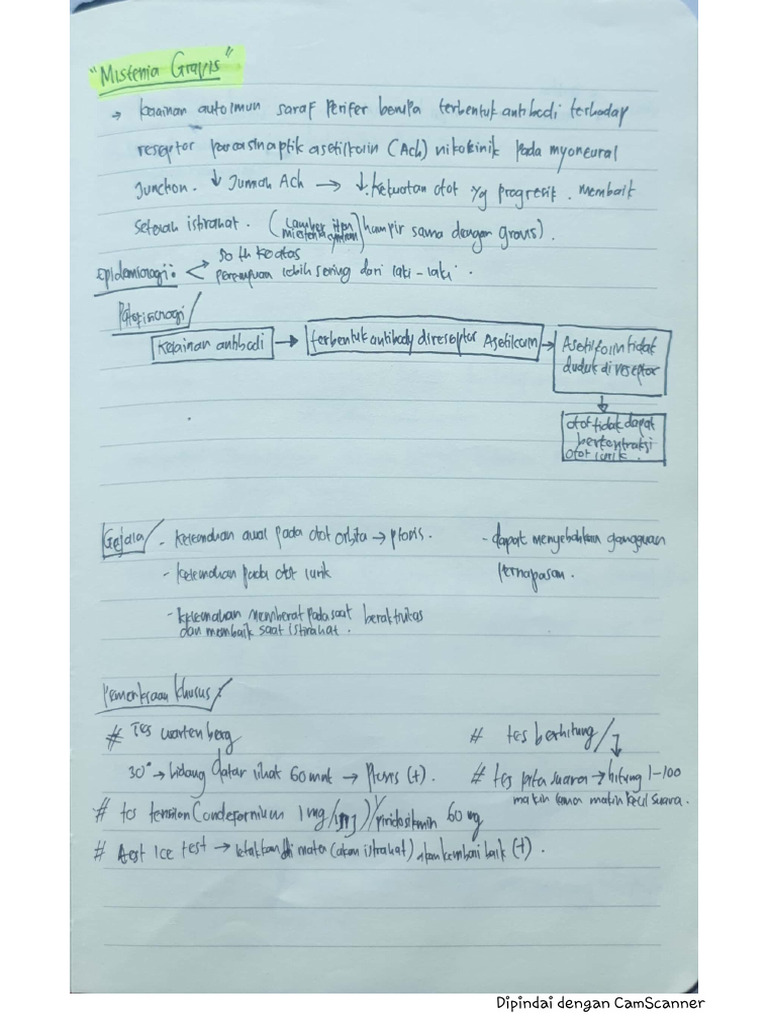 "Mistenia Gravis"
→ Kelainan autoimun saraf Perifer berupa terbentuk antibodi terhadap
reseptor pascasinaptik asetilkolin (Ach) nikotinik pada myoneural
Junction. ↓ Jumlah Ach → ↓ kekuatan otot yg progresif. membaik
setelah istirahat. (Lamber iton miestenia syndrom) hampir sama dengan gravis).
Epidemiologi: < 50 th ke atas
perempuan lebih sering dari laki-laki.
Patofisiologi
Kelainan antibodi → terbentuk antibody di reseptor Asetilcolin → Asetilkolin tidak
duduk di reseptor
↓
otot tidak dapat
berkontraksi
otot lurik.
Gejala - Kelemahan awal pada otot orbita → ptosis.
- kelemahan pada otot lurik
- kelemahan memberat pada saat beraktivitas
dan membaik saat istirahat.
- dapat menyebabkan gangguan
pernapasan.
Pemeriksaan khusus
# Tes wartenberg
30° → bidang datar lihat 60 mnt → Ptosis (+).
# tes berhitung
# tes pita suara → hitung 1-100
makin lama makin kecil suara.
# tes tensilon 1 mg / 60 mg
# Aest Ice test → letakkan di mata (akan istirahat) akan kembali baik (+).
Dipindai dengan CamScanner